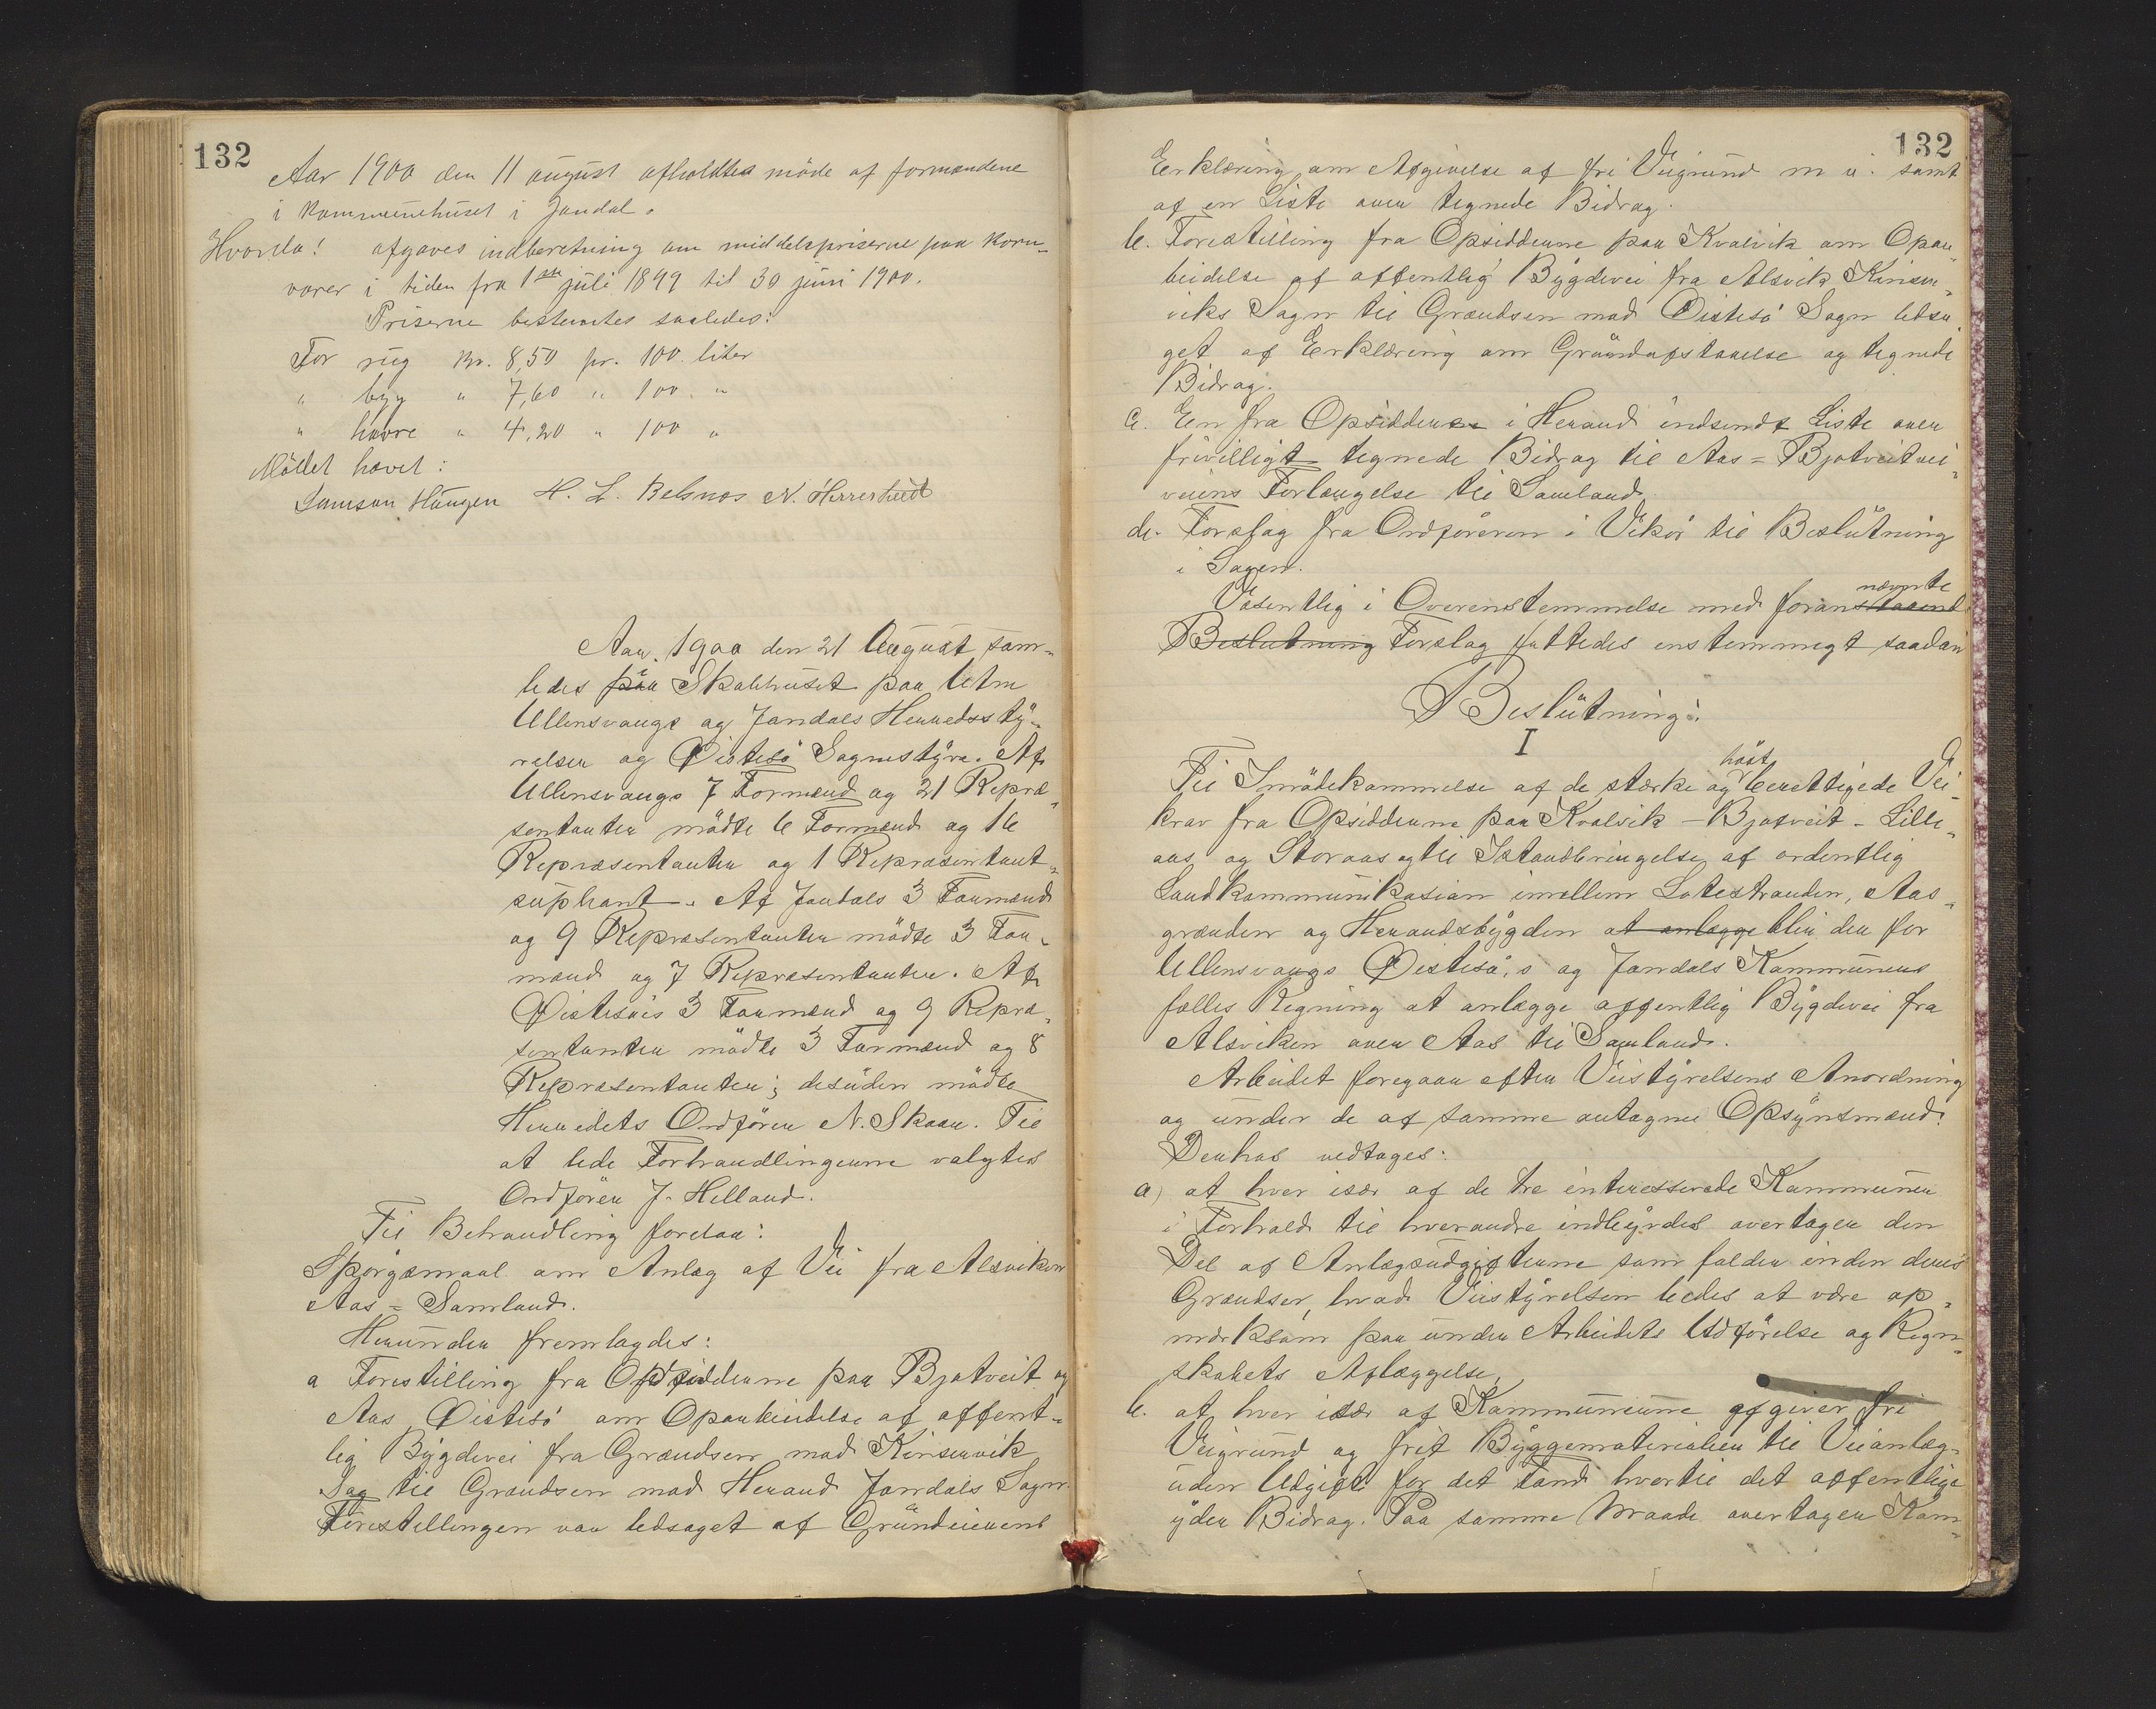 132
Aar 1900 den 11 august afholdtes möde af formændene
i kommunehuset i Jondal.
Hvorda! afgaves indberetning om middelspriserne paa korn-
varer i tiden fra 1ste juli 1899 til 30 juni 1900.
Priserne bestemtes saaledes:
For rug kr. 8,50 pr. 100 liter
" byg " 7,60 " 100. "
" havre " 4,20 " 100 "
Mödet hævet:
Samson Haugen H. L. Belsnes N. Herrestvedt
Aar 1900 den 21 August sam-
ledes paa Skolehuset paa Utne
Ullensvangs og Jondals Herredssty-
relser og Östesö Sognestyre. Af
Ullensvangs 7 Formænd og 21 Repræ-
sentanter mödte 6 Formænd og 16
Repræsentanter og 1 Repræsentant-
suphant. Af Jondals 3 Formænd
og 9 Repræsentanter mödte 3 For-
mænd og 7 Repræsentanter. Af
Östesöis 3 Formænd og 9 Repræ-
sentanter mödte 3 Formænd og 8
Repræsentanter; desuden mödte
Herredets Ordförer N. Skaar. Til
at lede Forhandlingerne valgtes
Ordförer J. Helland.
Til Behandling forelaa:
Spörgsmaal om Anlæg af Vei fra Alsviken
Aas = Samland.
Herunder fremlagdes:
a Forestilling fra Opsidderne paa Bjotveit og
Aas Östesö om Oparbeidelse af offent-
lig Bygdevei fra Grændsen mod Kinservik
Sog til Grændsen mod Herand Jondals Sogn.
Forestillingen var ledsaget af Grundeiernes
132
Erklæring om Afgivelse af fri Veigrund m. v. samt
af en Liste over tegnede Bidrag.
b. Forestilling fra Opsidderne paa Kvalvik om Opar-
beidelse af offentlig Bygdevei fra Alsvik Kinser-
viks Sogn til Grændsen mod Östesö Sogn ledsa-
get af Erklæring om Grundafstaaelse og tegnede
Bidrag.
c. En fra Opsidderne i Herand indsendt Liste over
frivilligt tegnede Bidrag til Aas = Bjotveitvei-
veiens Forlængelse til Samland.
d. Forslag fra Ordföreren i Vikör til Beslutning
i Sagen.
Væsentlig i Overenstemmelse med forannævnte
Beslutning Forslag fattedes enstemmigt saadan
Beslutning:
I
Til Imödekommelse af de stærke og höist berettigede Vei-
krav fra Opsidderne paa Kvalvik – Bjotveit – Lille-
aas og Storaas og til Istandbringelse af ordentlig
Landkommunikasion imellem Lotestranden, Aas-
grænden og Herandsbygden at anlægge blir der for
Ullensvangs Östesö's og Jondals Kommuners
fælles Regning at anlægge offentlig Bygdevei fra
Alsviken over Aas til Samland.
Arbeidet foregaar efter Veistyrelsens Anordning
og under de af samme antagne Opsynsmænd.
Derhos vedtages:
a) at hver især af de tre interesserede Kommuner
i Forhold til hverandre indbyrdes overtager den
Del af Anlægsudgifterne som falder inden deres
Grændser, hvad Veistyrelsen bedes at være op-
mærksom paa under Arbeidets Udförelse og Regn-
skabets Aflæggelse,
b. at hver især af Kommunerne afgiver fri
Veigrund og frit Byggematerialier til Veianlæg-
uden Udgift for det Fond hvortil det offentlige
yder Bidrag. Paa samme Maade overtager Kom-